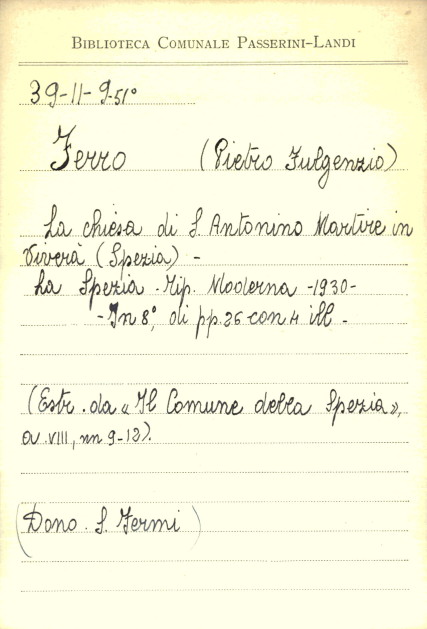 BIBLIOTECA COMUNALE PASSERINI-LANDI
39-11-9-51°
Ferro (Pietro Fulgenzio)
La chiesa di S. Antonino Martire in
Viverà (Spezia) -
La Spezia - Tip. Moderna - 1930 -
- In 8°, di pp. 26 con 4 ill -
(Estr. da « Il Comune della Spezia»,
a. VIII, nn 9-12).
(Dono. S. Fermi)